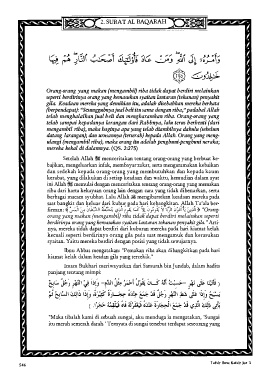 2. SURAT AL BAQARAH
وَأَمْرُهُ إِلَى اللَّهِ وَمَنْ عَادَ فَأُولَٰئِكَ أَصْحَابُ النَّارِ هُمْ فِيهَا
خَالِدُونَ
Orang-orang yang makan (mengambil) riba tidak dapat berdiri melainkan
seperti berdirinya orang yang kemasukan syaitan lantaran (tekanan) penyakit
gila. Keadaan mereka yang demikian itu, adalah disebabkan mereka berkata
(berpendapat): "Sesungguhnya jual beli itu sama dengan riba," padahal Allah
telah menghalalkan jual beli dan mengharamkan riba. Orang-orang yang
telah sampai kepadanya larangan dari Rabbnya, lalu terus berhenti (dari
mengambil riba), maka baginya apa yang telah diambilnya dahulu (sebelum
datang larangan); dan urusannya (terserah) kepada Allah. Orang yang mengulangi
(mengambil riba), maka orang itu adalah penghuni-penghuni neraka;
mereka kekal di dalamnya. (QS. 2:275)
Setelah Allah menceritakan tentang orang-orang yang berbuat kebajikan,
mengeluarkan infak, membayar zakat, serta mengutamakan kebaikan
dan sedekah kepada orang-orang yang membutuhkan dan kepada kaum
kerabat, yang dilakukan di setiap keadaan dan waktu, kemudian dalam ayat
ini Allah memulai dengan menceritakan tentang orang-orang yang memakan
riba dari harta kekayaan orang lain dengan cara yang tidak dibenarkan, serta
berbagai macam syubhat. Lalu Allah mengibaratkan keadaan mereka pada
saat bangkit dan keluar dari kubur pada hari kebangkitan. Allah Ta'ala ber-
orang yang makan (mengambil) riba tidak dapat berdiri melainkan seperti
berdirinya orang yang kemasukan syaitan lantaran tekanan penyakit gila." Artinya,
mereka tidak dapat berdiri dari kuburan mereka pada hari kiamat kelak
kecuali seperti berdirinya orang gila pada saat mengamuk dan kerasukan
syaitan. Yaitu mereka berdiri dengan posisi yang tidak sewajarnya.
Ibnu Abbas mengatakan: "Pemakan riba akan dibangkitkan pada hari
kiamat kelak dalam keadaan gila yang tercekik."
Imam Bukhari meriwayatkan dari Samurah bin Jundab, dalam hadits
panjang tentang mimpi:
"Maka tibalah kami di sebuah sungai, aku menduga ia mengatakan, 'Sungai
itu merah semerah darah.' Ternyata di sungai tersebut terdapat seseorang yang
546
Tafsir Ibnu Katsir Juz 3